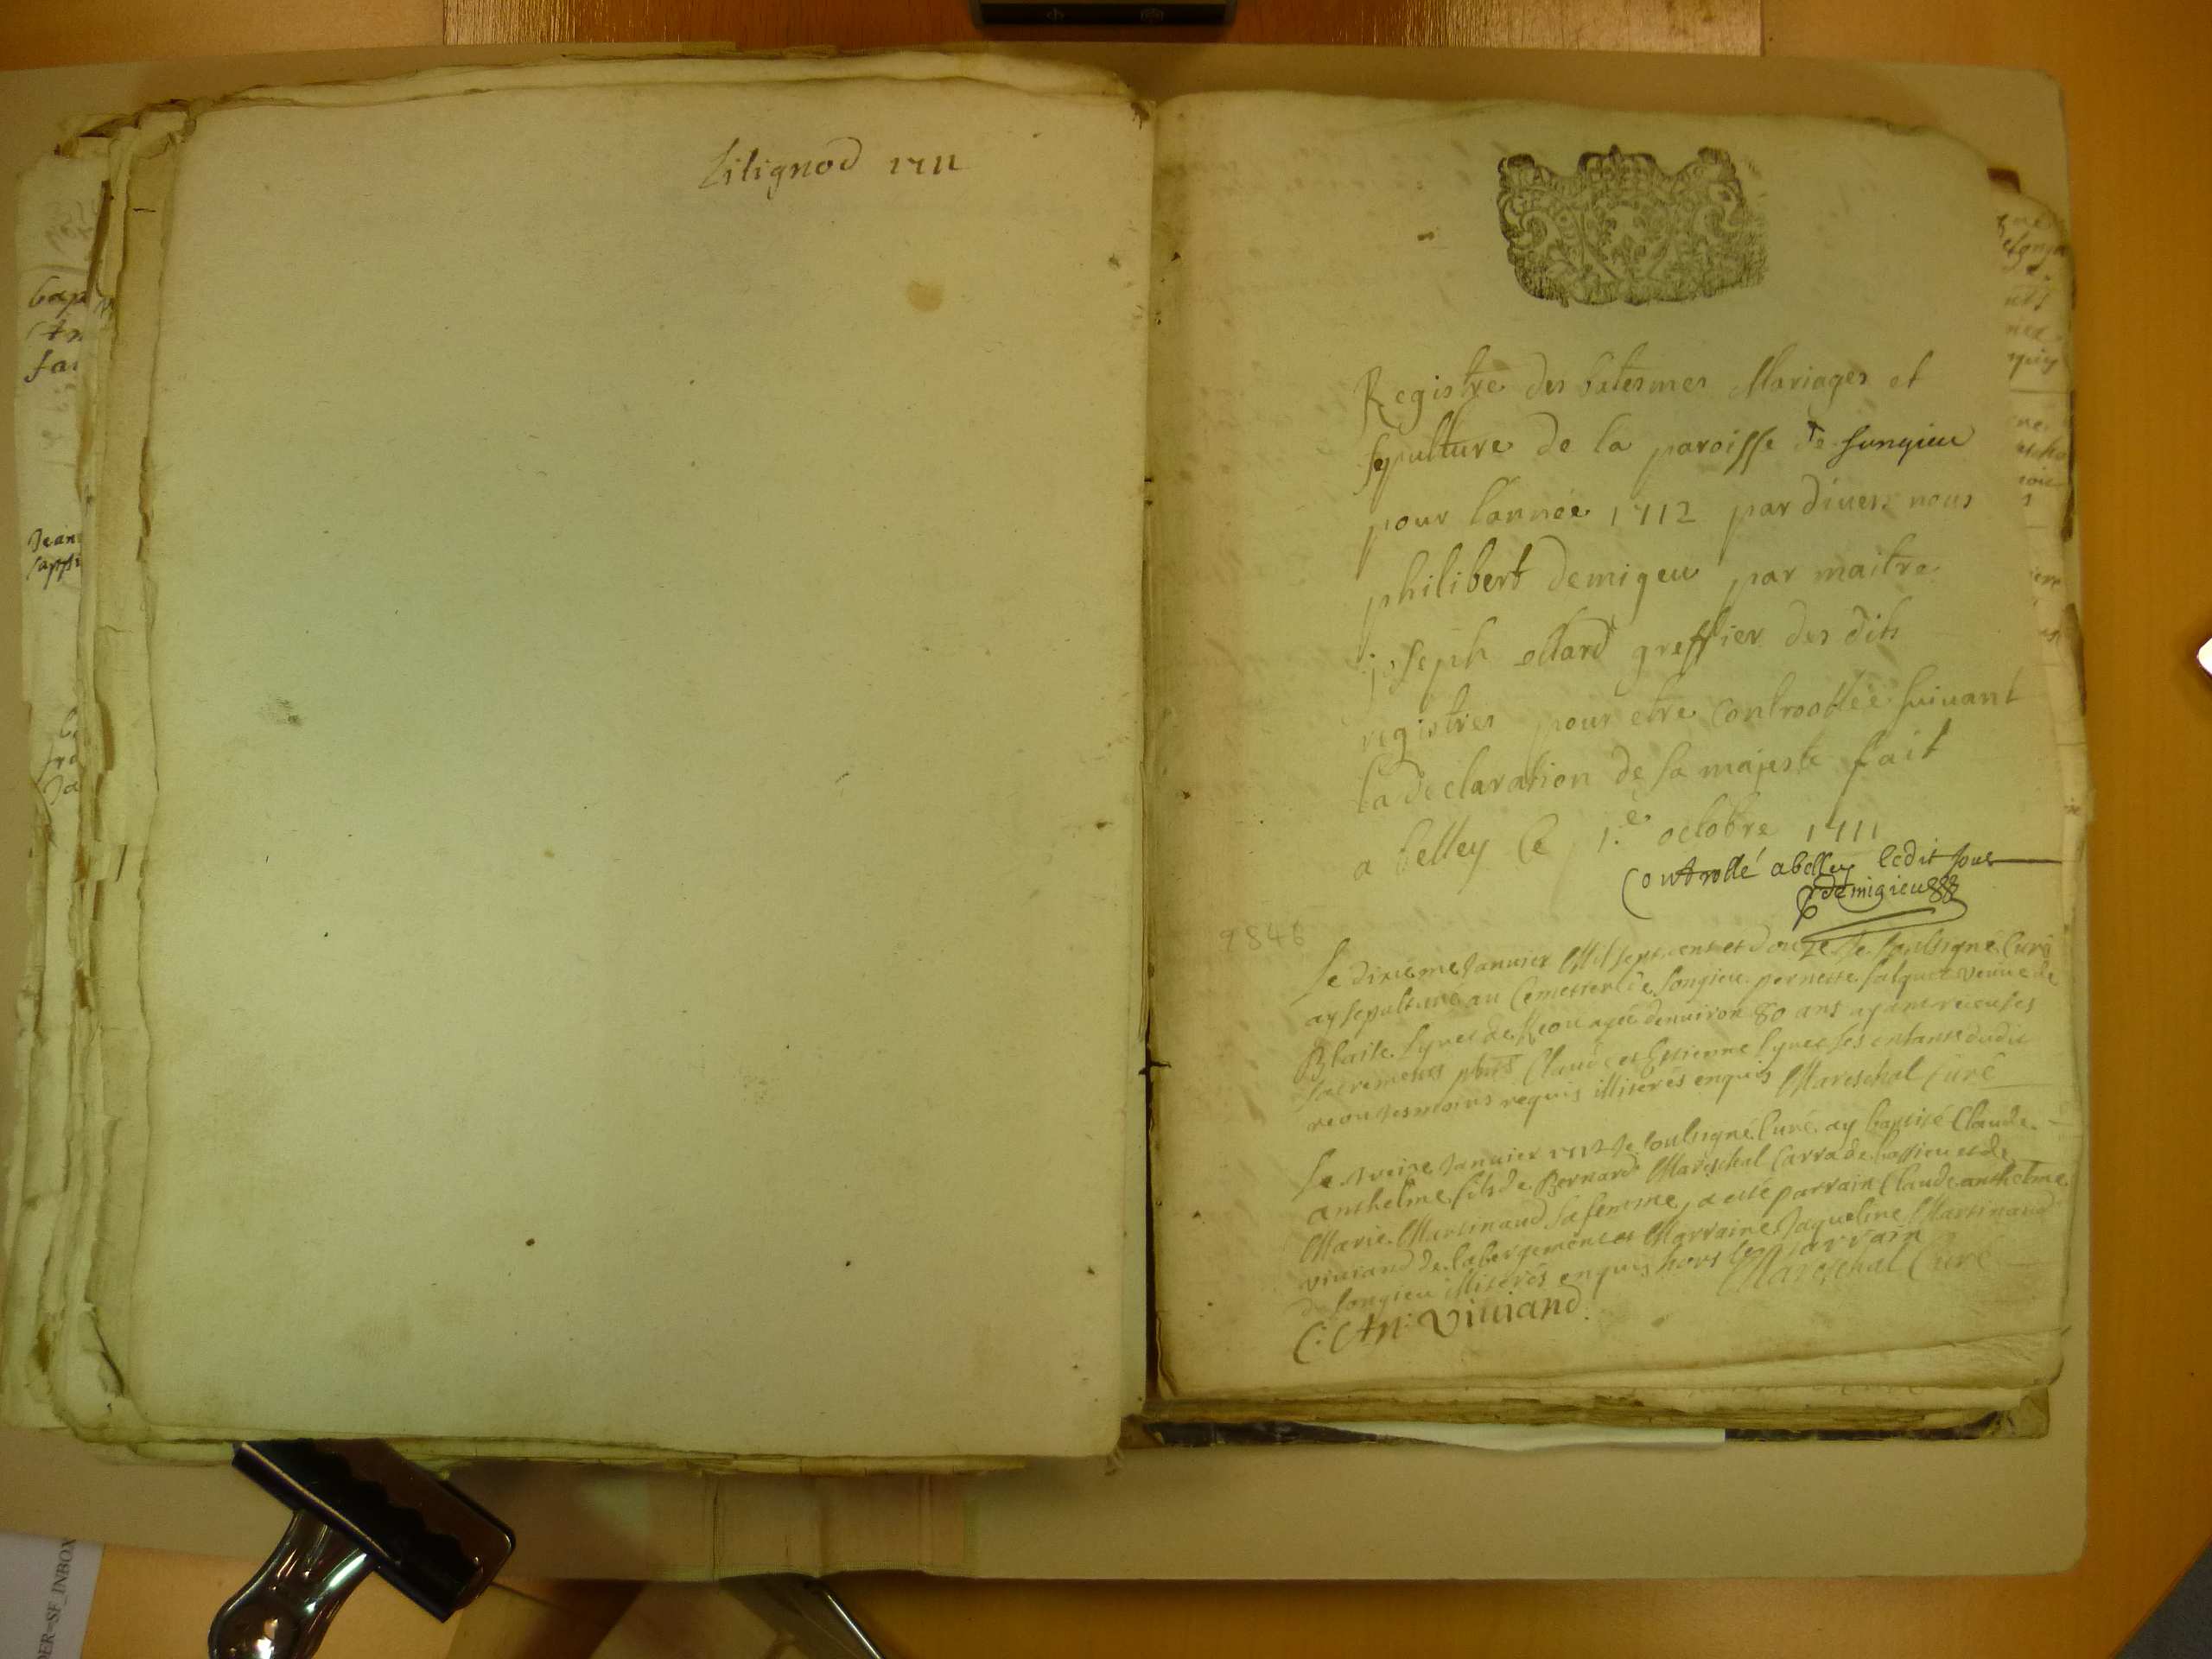 Lilignod 1711
Registre des batesmes Mariages et
sepulture de la paroisse de songieu
pour l'année 1712 par diuers nous
philibert demigieu par maitre
joseph ollard greffier des dits
registres pour etre controollée suiuant
la declaration de sa majeste fait
a belley le 1.e octobre 1711
Controllé abelley ledit jour
demigieu
9846
Le dixieme Januier Mil sept cent et douze Je soussigné Curé
ay sepulturé au Cemetier de Songieu pernette falquet veuue de
Blaise Lyuet de Reou agée denuiron 80 ans ayant receu ses
sacrements pnts Claude et Estienne Lyuet ses enfants dudit
reou tesmoins requis illiterés enquis Mareschal Curé
Le treize Januier 1712 Je soussigné Curé ay baptisé Claude
anthelme fils de Bernard Mareschal Carra de bossieu et de
Marie Martinand sa femme, a esté parrain Claude anthelme
viuiand de labergement et Marraine Jaqueline Martinand
de Songieu illiterés enquis hors le parrain
Mareschal Curé
C: An: Viuiand.
bap
Jean
DER=SF_INBOX